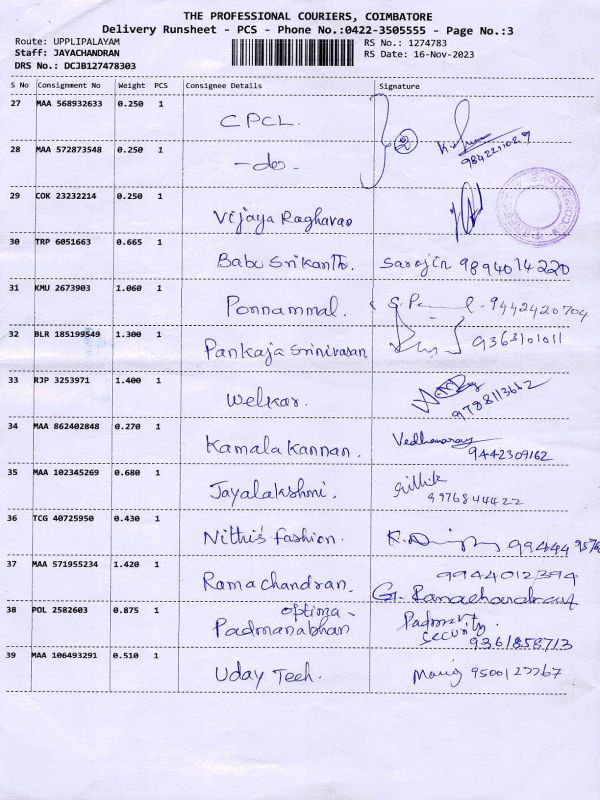 THE PROFESSIONAL COURIERS, COIMBATORE
Delivery Runsheet - PCS - Phone No.:0422-3505555 - Page No.:3
Route: UPPLIPALAYAM
RS No.: 1274783
Staff: JAYACHANDRAN
RS Date: 16-Nov-2023
DRS No.: DCJB127478303
S No Consignment No Weight PCS Consignee Details Signature
27 MAA 568932633 0.250 1 CPCL.
28 MAA 572873548 0.250 1 -do- 2
29 COK 23232214 0.250 1 Vijaya Raghavan
30 TRP 6051663 0.665 1 Babu Srikanth. Sarojin 9894014220
31 KMU 2673903 1.060 1 Ponnammal. 9442420704
32 BLR 185199549 1.300 1 Pankaja Srinivasan 9363101011
33 RJP 3253971 1.400 1 Welkar. 9788113662
34 MAA 862402848 0.270 1 Kamala Kannan. 9442309162
35 MAA 102345269 0.680 1 Jayalakshmi. 9976844422
36 TCG 40725950 0.430 1 Nithi's fashion.
37 MAA 571955234 1.420 1 Ramachandran. G. Ramachandran
38 POL 2582603 0.875 1 optima -
Padmanabhan security. 9361858713
39 MAA 106493291 0.510 1 Uday Tech.